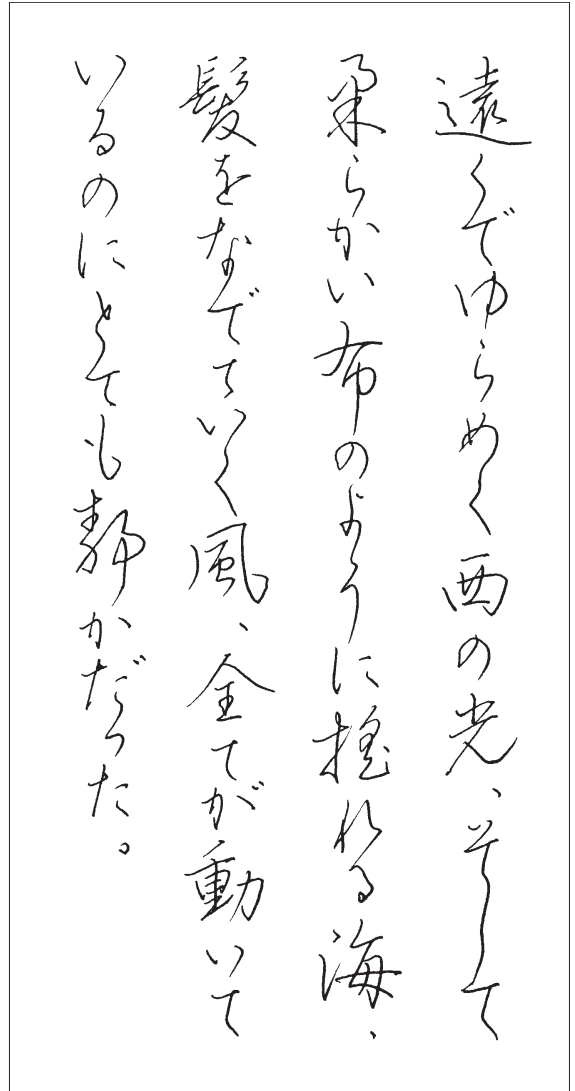 遠くでゆらめく西の光、そして
柔らかい布のように揺れる海、
髪をなでていく風、全てが動いて
いるのにとても静かだった。